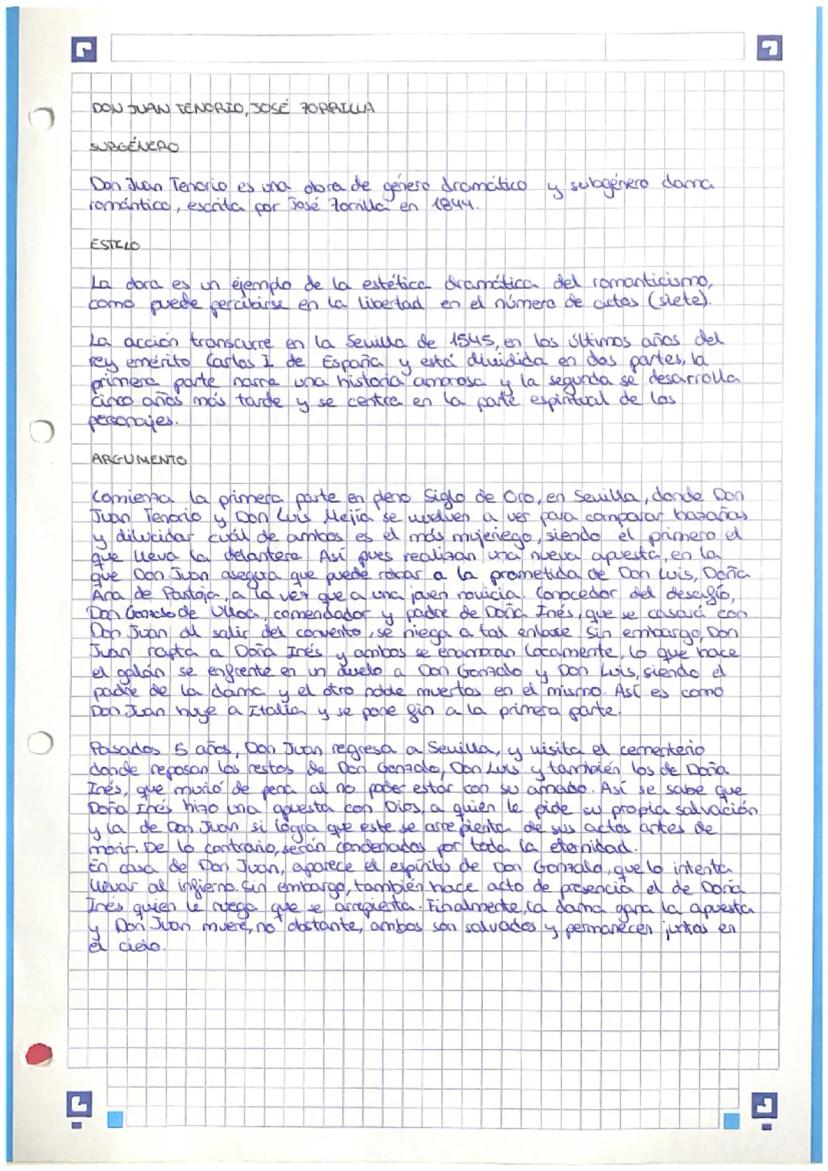 DON JUAN TENORIO, JOSÉ ZORRILLA
SUBGÉNERO
Don Juan Tenorio es una obra de género dramático y subgénero drama
romántico, escrita por José Zorrilla en 1844.
ESTILO
La obra es un ejemplo de la estética dramática del romanticismo,
como puede percibirse en la libertad en el número de actos (siete).
La acción transcurre en la Sevilla de 1545, en los últimos años del
rey emérito Carlos I de España y está dividida en dos partes, la
primera parte narra una historia amorosa y la segunda se desarrolla
cinco años más tarde y se centra en la parte espiritual de los
personajes.
ARGUMENTO
Comienza la primera parte en pleno Siglo de Oro, en Sevilla, donde Don
Juan Tenorio y Don Luis Mejía se vuelven a ver para comparar hazañas
y dilucidar cuál de ambos es el más mujeriego, siendo el primero el
que lleva la delantera. Así pues realizan una nueva apuesta, en la
que Don Juan asegura que puede robar a la prometida de Don Luis, Doña
Ana de Pantoja, a la vez que a una joven novicia. Conocedor del desafío,
Don Gonzalo de Ulloa, comendador y padre de Doña Inés, que se casará con
Don Juan al salir del convento, se niega a tal enlace. Sin embargo, Don
Juan rapta a Doña Inés y ambos se enamoran locamente, lo que hace
el galán se enfrente en un duelo a Don Gonzalo y Don Luis, siendo el
padre de la dama y el otro noble muertos en el mismo. Así es como
Don Juan huye a Italia y se pone fin a la primera parte.
Pasados 5 años, Don Juan regresa a Sevilla, y visita el cementerio
donde reposan los restos de Don Gonzalo, Don Luis y también los de Doña
Inés, que murió de pena al no poder estar con su amado. Así se sabe que
Doña Inés hizo una apuesta con Dios, a quien le pide su propia salvación
y la de Don Juan si logra que este se arrepienta de sus actos antes de
morir. De lo contrario, serán condenados por toda la eternidad.
En casa de Don Juan, aparece el espíritu de Don Gonzalo, que lo intenta
llevar al infierno. Sin embargo, también hace acto de presencia el de Doña
Inés quien le ruega que se arrepienta. Finalmente, la dama gana la apuesta
y Don Juan muere, no obstante, ambos son salvados y permanecen juntos en
el cielo.